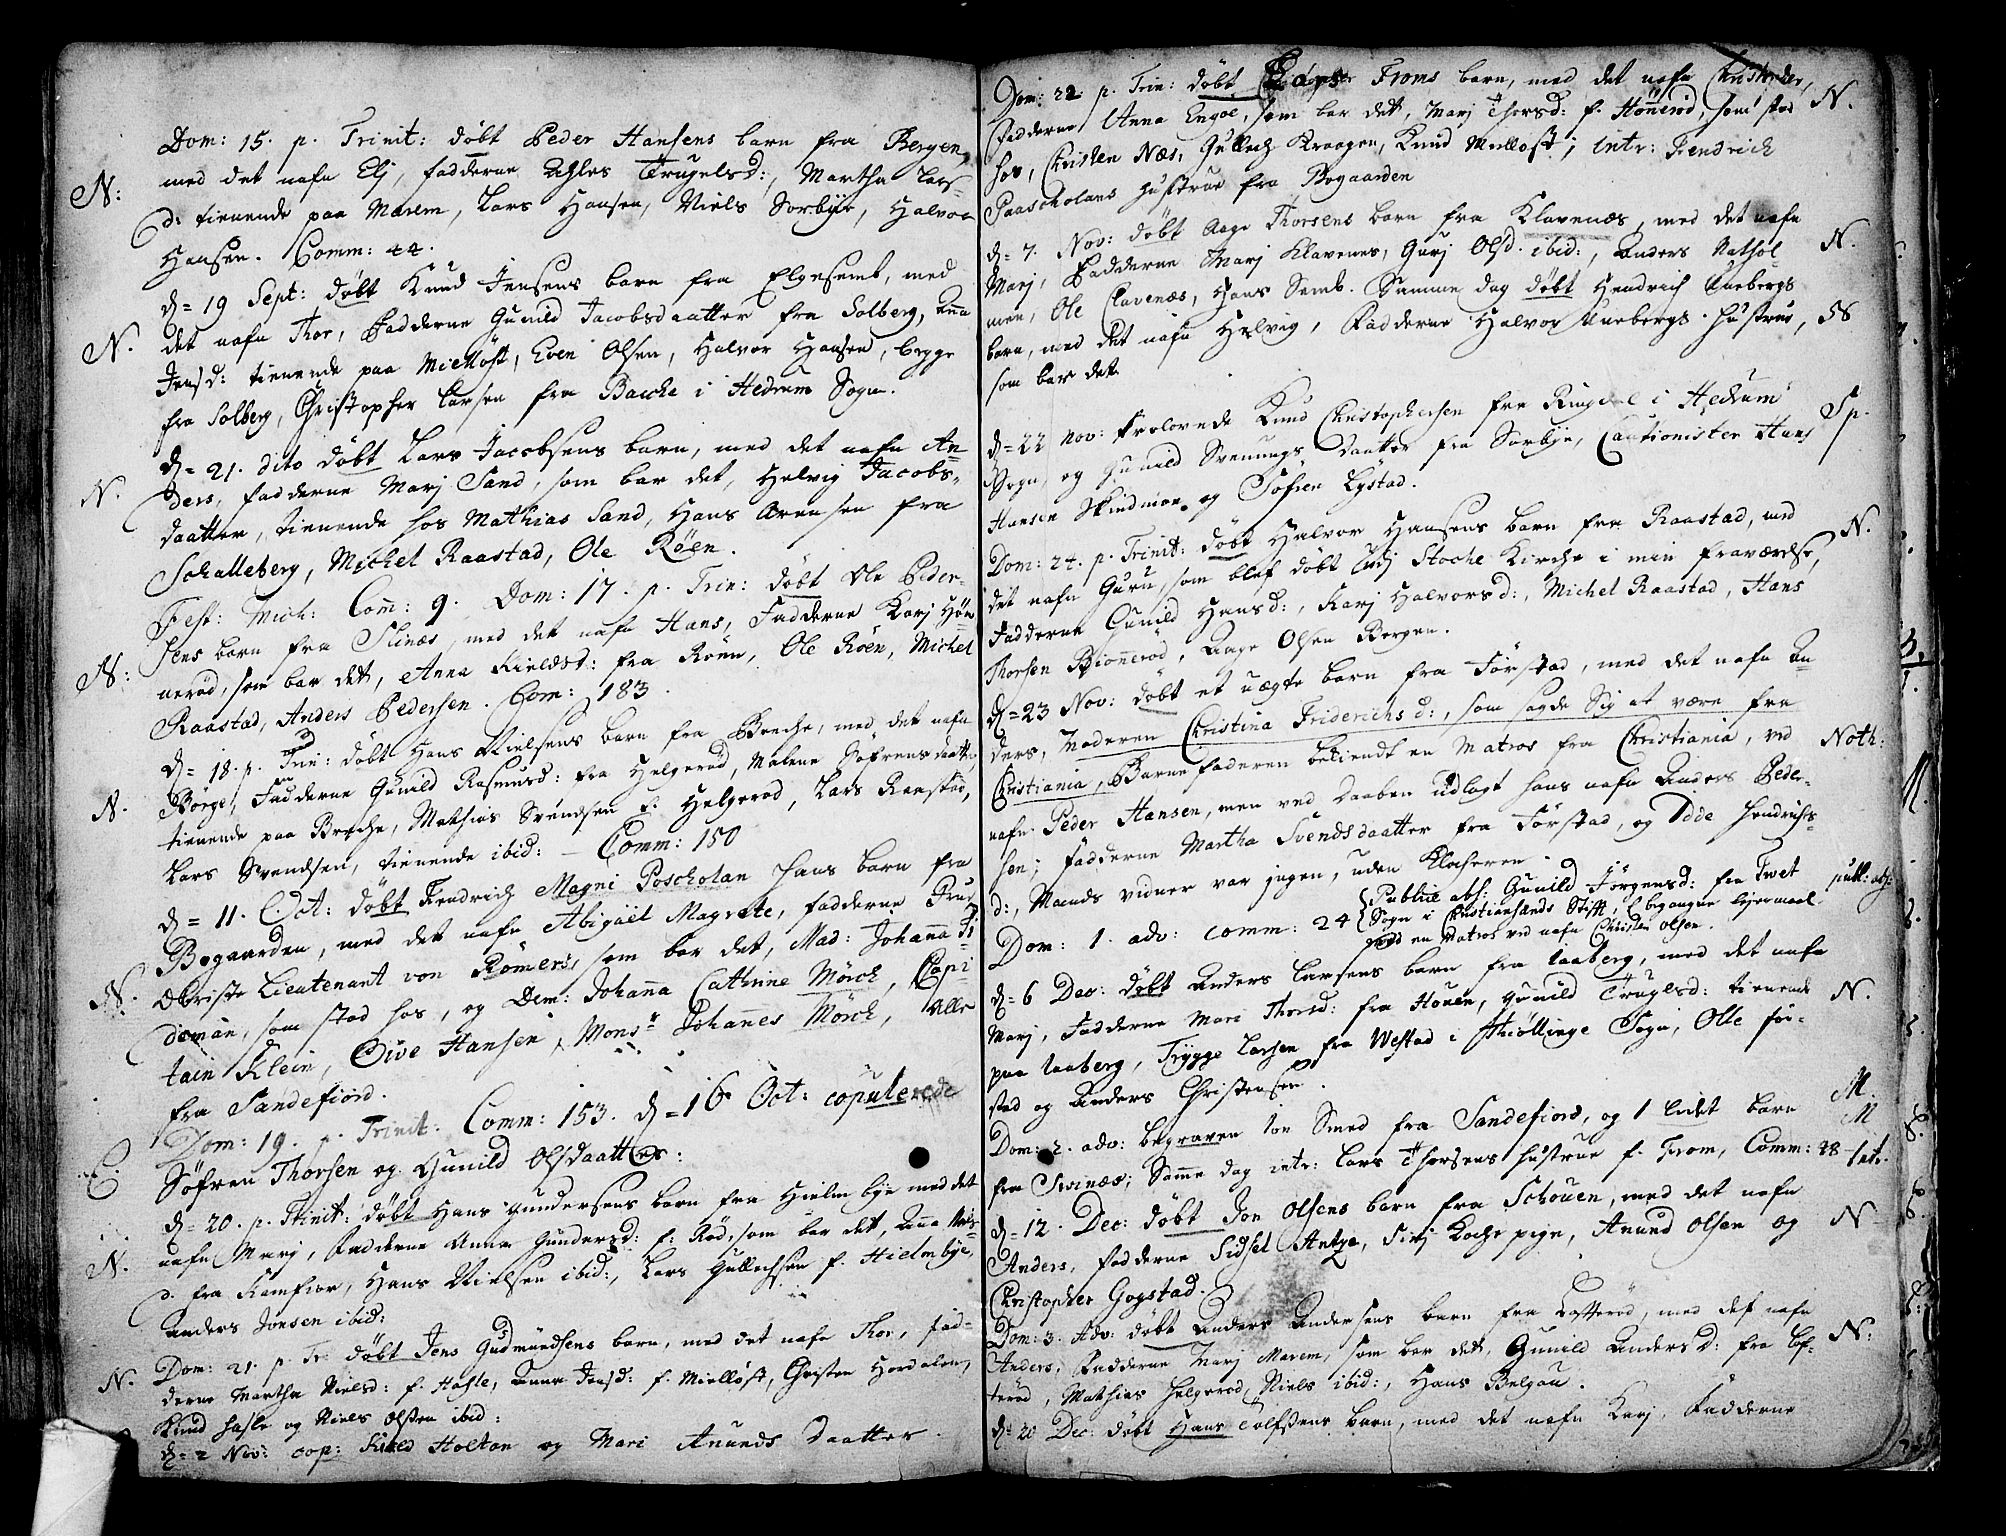 Dom: 15. p. Trinit: döbt Peder Hansens barn fra Bergen,
N: med det nafn Elj, fadderne Trugelsd:, Martha Lars-
d: tienende paa Marem, Lars Hansen, Niels Sorbye, Halvor
Hansen. Comm: 44.
d= 19 Sept: döbt Knud Jensens barn fra Elgesemb, med
N. det nafn Thor, Fadderne Gunild Jacobsdaatter fra Solberg, Anna
Jensd: tienende paa Miellöst, Even Olsen, Halvor Hansen, begge
fra Solberg, Christopher Larsen fra Bache i Hedrum Sogn.
d= 21. dito döbt Lars Jacobsens barn, med det nafn An-
N. ders, fadderne Marj Sand, som bar det, Helvig Jacobs-
daatter, tienende hos Mathias Sand, Hans Arensen fra
Schalleberg, Michel Raastad, Ole Röen.
Fest: Mich: Com: 9. Dom: 17. p. Trin: döbt Ole Peder-
N: sens barn fra Slinæs, med det nafn Hans, Fadderne Karj Hön-
neröd, som bar det, Anna Kieldsd: fra Röen, Ole Röen, Michel
Raastad, Anders Pedersen. Com: 183.
d= 18. p. Trin: döbt Hans Nielsens barn fra Breche, med det nafn
N. Börge, Fadderne Gunild Rasmusd: fra Helgeröd, Malene Söfrensdaatter,
tienende paa Breche, Mathias Svendsen f. Helgeröd, Lars Raastad,
Lars Svendsen, tienende ibid: — Comm: 150
d= 11. Oct: döbt Fendrich Magni Poscholan hans barn fra
Bogaarden, med det nafn Abigäel Magrete, fadderne Frue
N. Obriste Lieutenant von Römers, som bar det, Mad: Johanna Ti-
deman, som stod hos, og Dem: Johanna Cathrine Mörch, Capi-
tain Klein, Oive Hansen, Monsr Johannes Mörch, Alle
fra Sandefiord.
Dom: 19. p. Trinit: Comm: 153. d= 16 Oct: copulerede
C. Söfren Thorsen og Gunild Olsdaatter:
d= 20. p. Trinit: döbt Hans Gundersens barn fra Hielmbye med det
N. nafn Marj, Fadderne Anna Gundersd: f: Röd, som bar det, Anna Niels-
d. fra Kamfior, Hans Nielsen ibid:, Lars Gullachsen f. Hielmbye,
Anders Jonsen ibid:
N. Dom: 21. p. Tr: döbt Jens Gudmundsens barn, med det nafn Thor, fad-
derne Martha Nielsd: f. Hasle, Anna Jensd: f. Miellöst, Christen Hierdalen,
Knud Hasle og Niels Olssen ibid:
d= 2 Nov: cop: Kield Holtan og Mari Anunds Daatter.
Dom: 22 p. Trin: döbt Lars Froms barn, med det nafn Christopher, N.
Fadderne Anna Engoe, som bar det, Marj Thorsd: f. Honneröd, som stod
hos, Christen Næs, Gullech Kraagen, Knud Miellöst; intr: Fendrich
Paascholans hustrue fra Bogaarden
d= 7. Nov: döbt Aage Thorsens barn fra Klavenæs, med det nafn N.
Marj, Fadderne Marj Klavenes, Gurj Olsd. ibid:, Anders Nathol-
men, Ole Clavenæs, Hans Semb. Samme dag döbt Hendrich Aaebergs
barn, med det nafn Helvig, Fadderne Halvor Aaebergs hustrue, 58
som bar det
d= 22 Nov: trolovede Knud Christophersen fra Ringdal i Hedrum Sp.
Sogn, og Gunild Svenungs daatter fra Sorbye, Cautionister Hans
Hansen Skindmoe og Söfren Lystad.
Dom: 24. p. Trinit: döbt Halvor Hansens barn fra Raastad, med N.
det nafn Guru, som blef döbt udj Stoche Kirche i min fraværelse,
Fadderne Gunild Hansd:, Karj Halvorsd:, Michel Raastad, Hans
Thorsen Bionneröd, Aage Olsen Bergen.
d= 23 Nov: döbt et uægte barn fra Förstad, med det nafn An-
ders, Moderen Christina Friderichsd:, som sagde Sig at være fra
Christiania, Barnefaderen bekiendt en Matros fra Christiania, ved Noth:
nafn Peder Hansen, men ved daaben udlagt hans nafn Anders Peder-
sen; fadderne Martha Svendsdaatter fra Förstad, og Odde Hendrichs-
d:, Mands vidner var ingen, uden Klocheren.
Dom: 1. adv: comm: 24 { Publice abs: Gunild Jörgensd: fra Twet publ: abs:
Sogn i Christiansands Stifft, f. begangne lejermaal
med en Matros ved nafn Christen Olsen.
d= 6 Dec: döbt Anders Larsens barn fra Aaberg, med det nafn
Marj, Fadderne Mari Thorsd: fra Houen, Gunild Trugelsd: tienende N.
paa Aaberg, Trygge Larsen fra Westad i Thiöllinge Sogn, Olle För-
stad og Anders Christensen.
Dom: 2. adv: begraven Jon Smed fra Sandefiord, og 1 lidet barn M.
M
fra Svinæs; Samme dag intr: Lars Thorsens hustrue f. From, Comm: 28 intr.
d= 12. Dec: döbt Jon Olsens barn fra Schouen, med det nafn
Anders, fadderne Sidsel Antze, Sirj Koche pige, Anund Olsen og N
Christopher Gogstad.
Dom: 3. Adv: döbt Anders Andersens barn fra Lofteröd, med det nafn
Anders, Fadderne Marj Marem, som bar det, Gunild Andersd: fra Lof- N:
teröd, Mathias Helgeröd, Niels ibid:, Hans Belgau.
d= 20 Dec: döbt Hans Tolfsens barn, med det nafn Karj, Fadderne